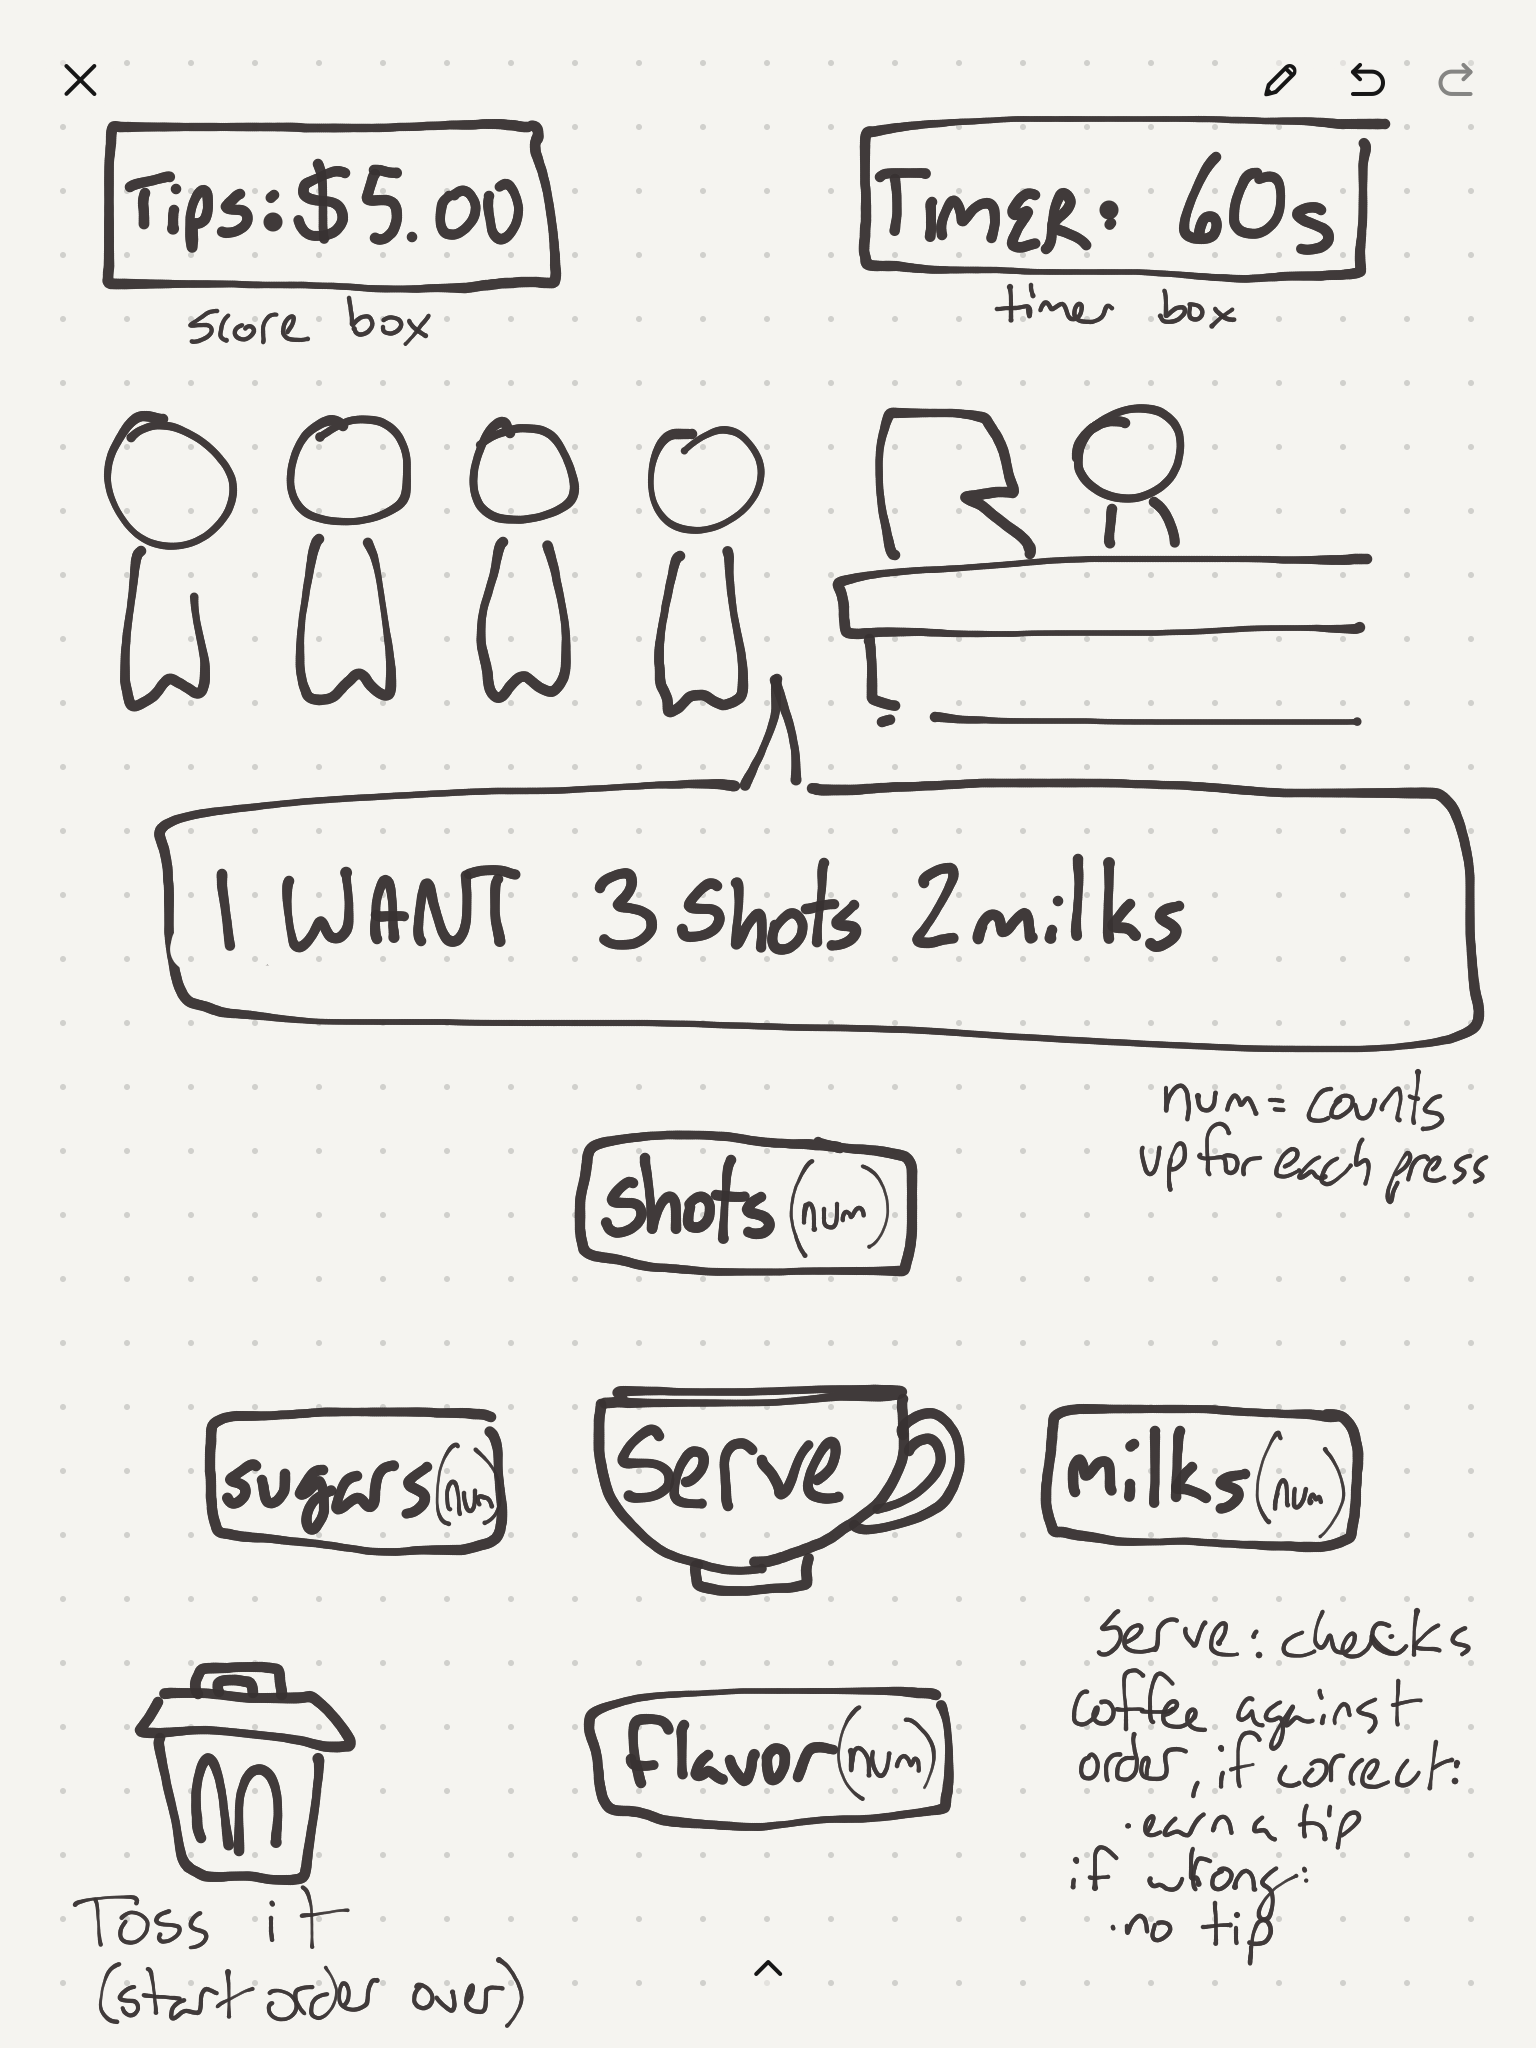 Tips: $5.00
TimER: 60s
score box
timer box
I WANT 3 shots 2 milks
num = counts
up for each press
shots (num)
sugars (num)
Serve
milks (num)
Serve: checks
coffee against
order, if correct:
· earn a tip
if wrong:
· no tip
flavor (num)
Toss it
(start order over)